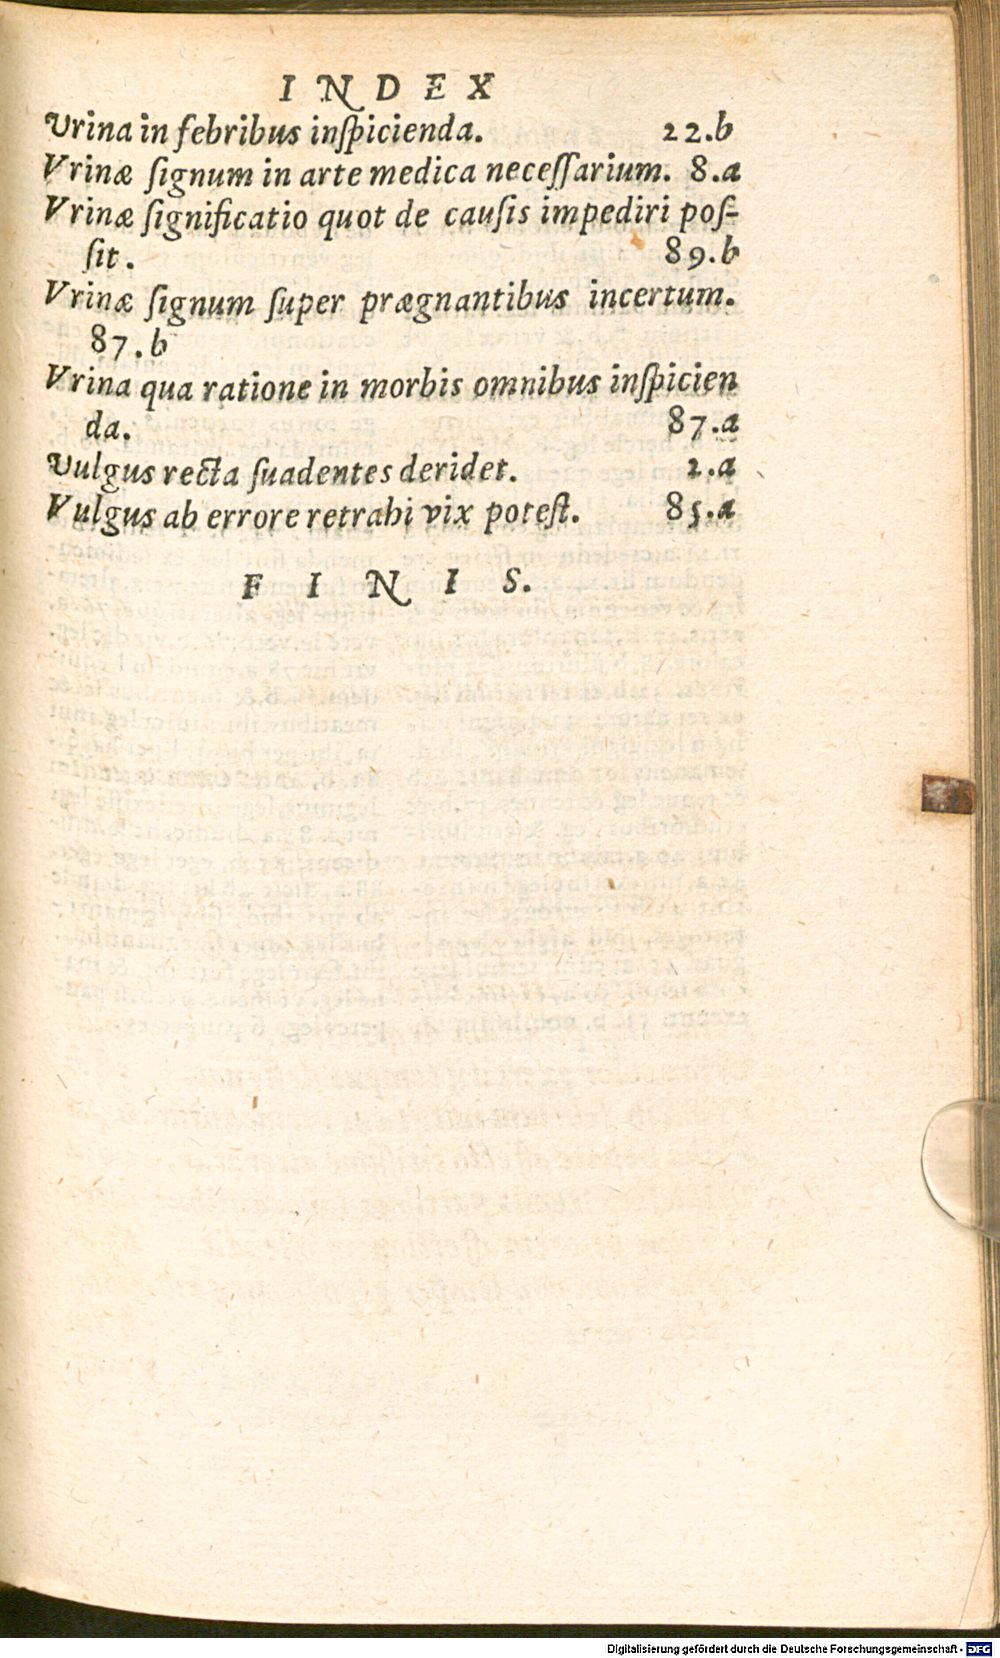 INDEX
Vrina in febribus inſpicienda. 22.b
Vrinæ ſignum in arte medica neceſſarium. 8.a
Vrinæ ſignificatio quot de cauſis impediri poſ-
ſit. 89.b
Vrinæ ſignum ſuper prægnantibus incertum.
87.b
Vrina qua ratione in morbis omnibus inſpicien
da. 87.a
Vulgus recta ſuadentes deridet. 2.a
Vulgus ab errore retrahi vix poteſt. 85.a
FINIS.
Digitalisierung gefördert durch die Deutsche Forschungsgemeinschaft - DFG